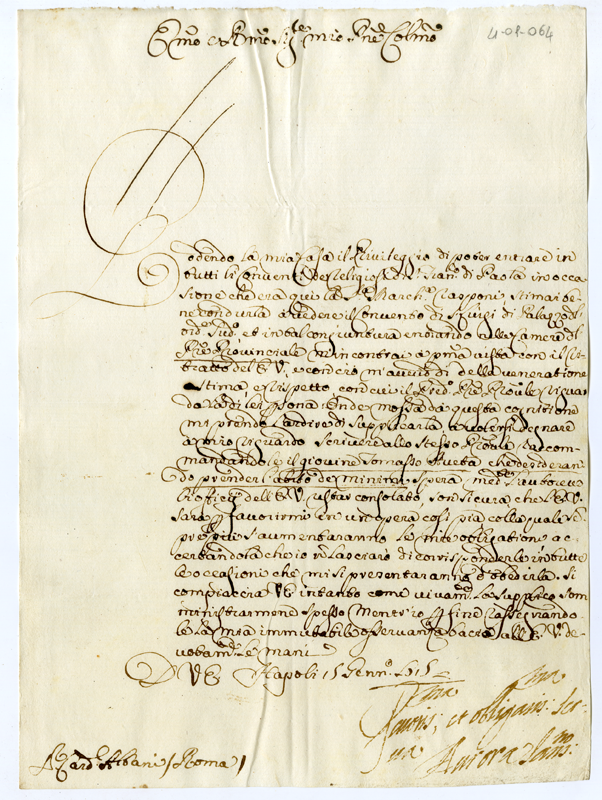 Emo e Rmo Sig.re mio Pne Colmo
4-01-064
Godendo la mia Casa il Privileggio di poter entrare in
tutti li Conventi de Religiosi di S. Fran.co di Paola in occa
sione che era qui la Sig.ra March.a Crasponi, stimai be
ne condurla a vedere il Convento di S. Luigi di Palazzo del
ord.e sud.o, et in tal congiuntura entrando alla Camera del
P're Provinciale m'incontrai a p'ma vista con il Ri
tratto dell'E.V., e con ciò m'avvidi della veneratione
stima, e rispetto con cui il Pred.o P're Pro'le riguar
da la di lei persona. Onde mossa da questa cognitione
mi prendo l'ardire di supplicarla, a volersi degnare
a mio riguardo scrivere allo stesso Pro'le raccom
mandandole il giovine Tomasso Rueba, che desideran
do prender l'abito de minimi, spera med.te l'autorevo
li ufficij dell'E.V. restar consolato, son sicura che l'E.V.
sarà p favorirmi in un'opera così pia, colla quale se
s'aumentaranno le mie obligationi, ac
certandola che io n lasciarò di corrisponderle in tutte
le occasioni che mi si presentaranno d'obedirla. Si
compiaccia VE intanto come vivam.te la supplico som
ministrarmene spesso mentr'io p fine rassegnando
le la mia immutabile osservanza bacio all'E.V. de
votam.te le mani
D VE Napoli 15 Genn.o 1715
et obligatis. Ser
va Aurora San
Card.e Albani / Roma /